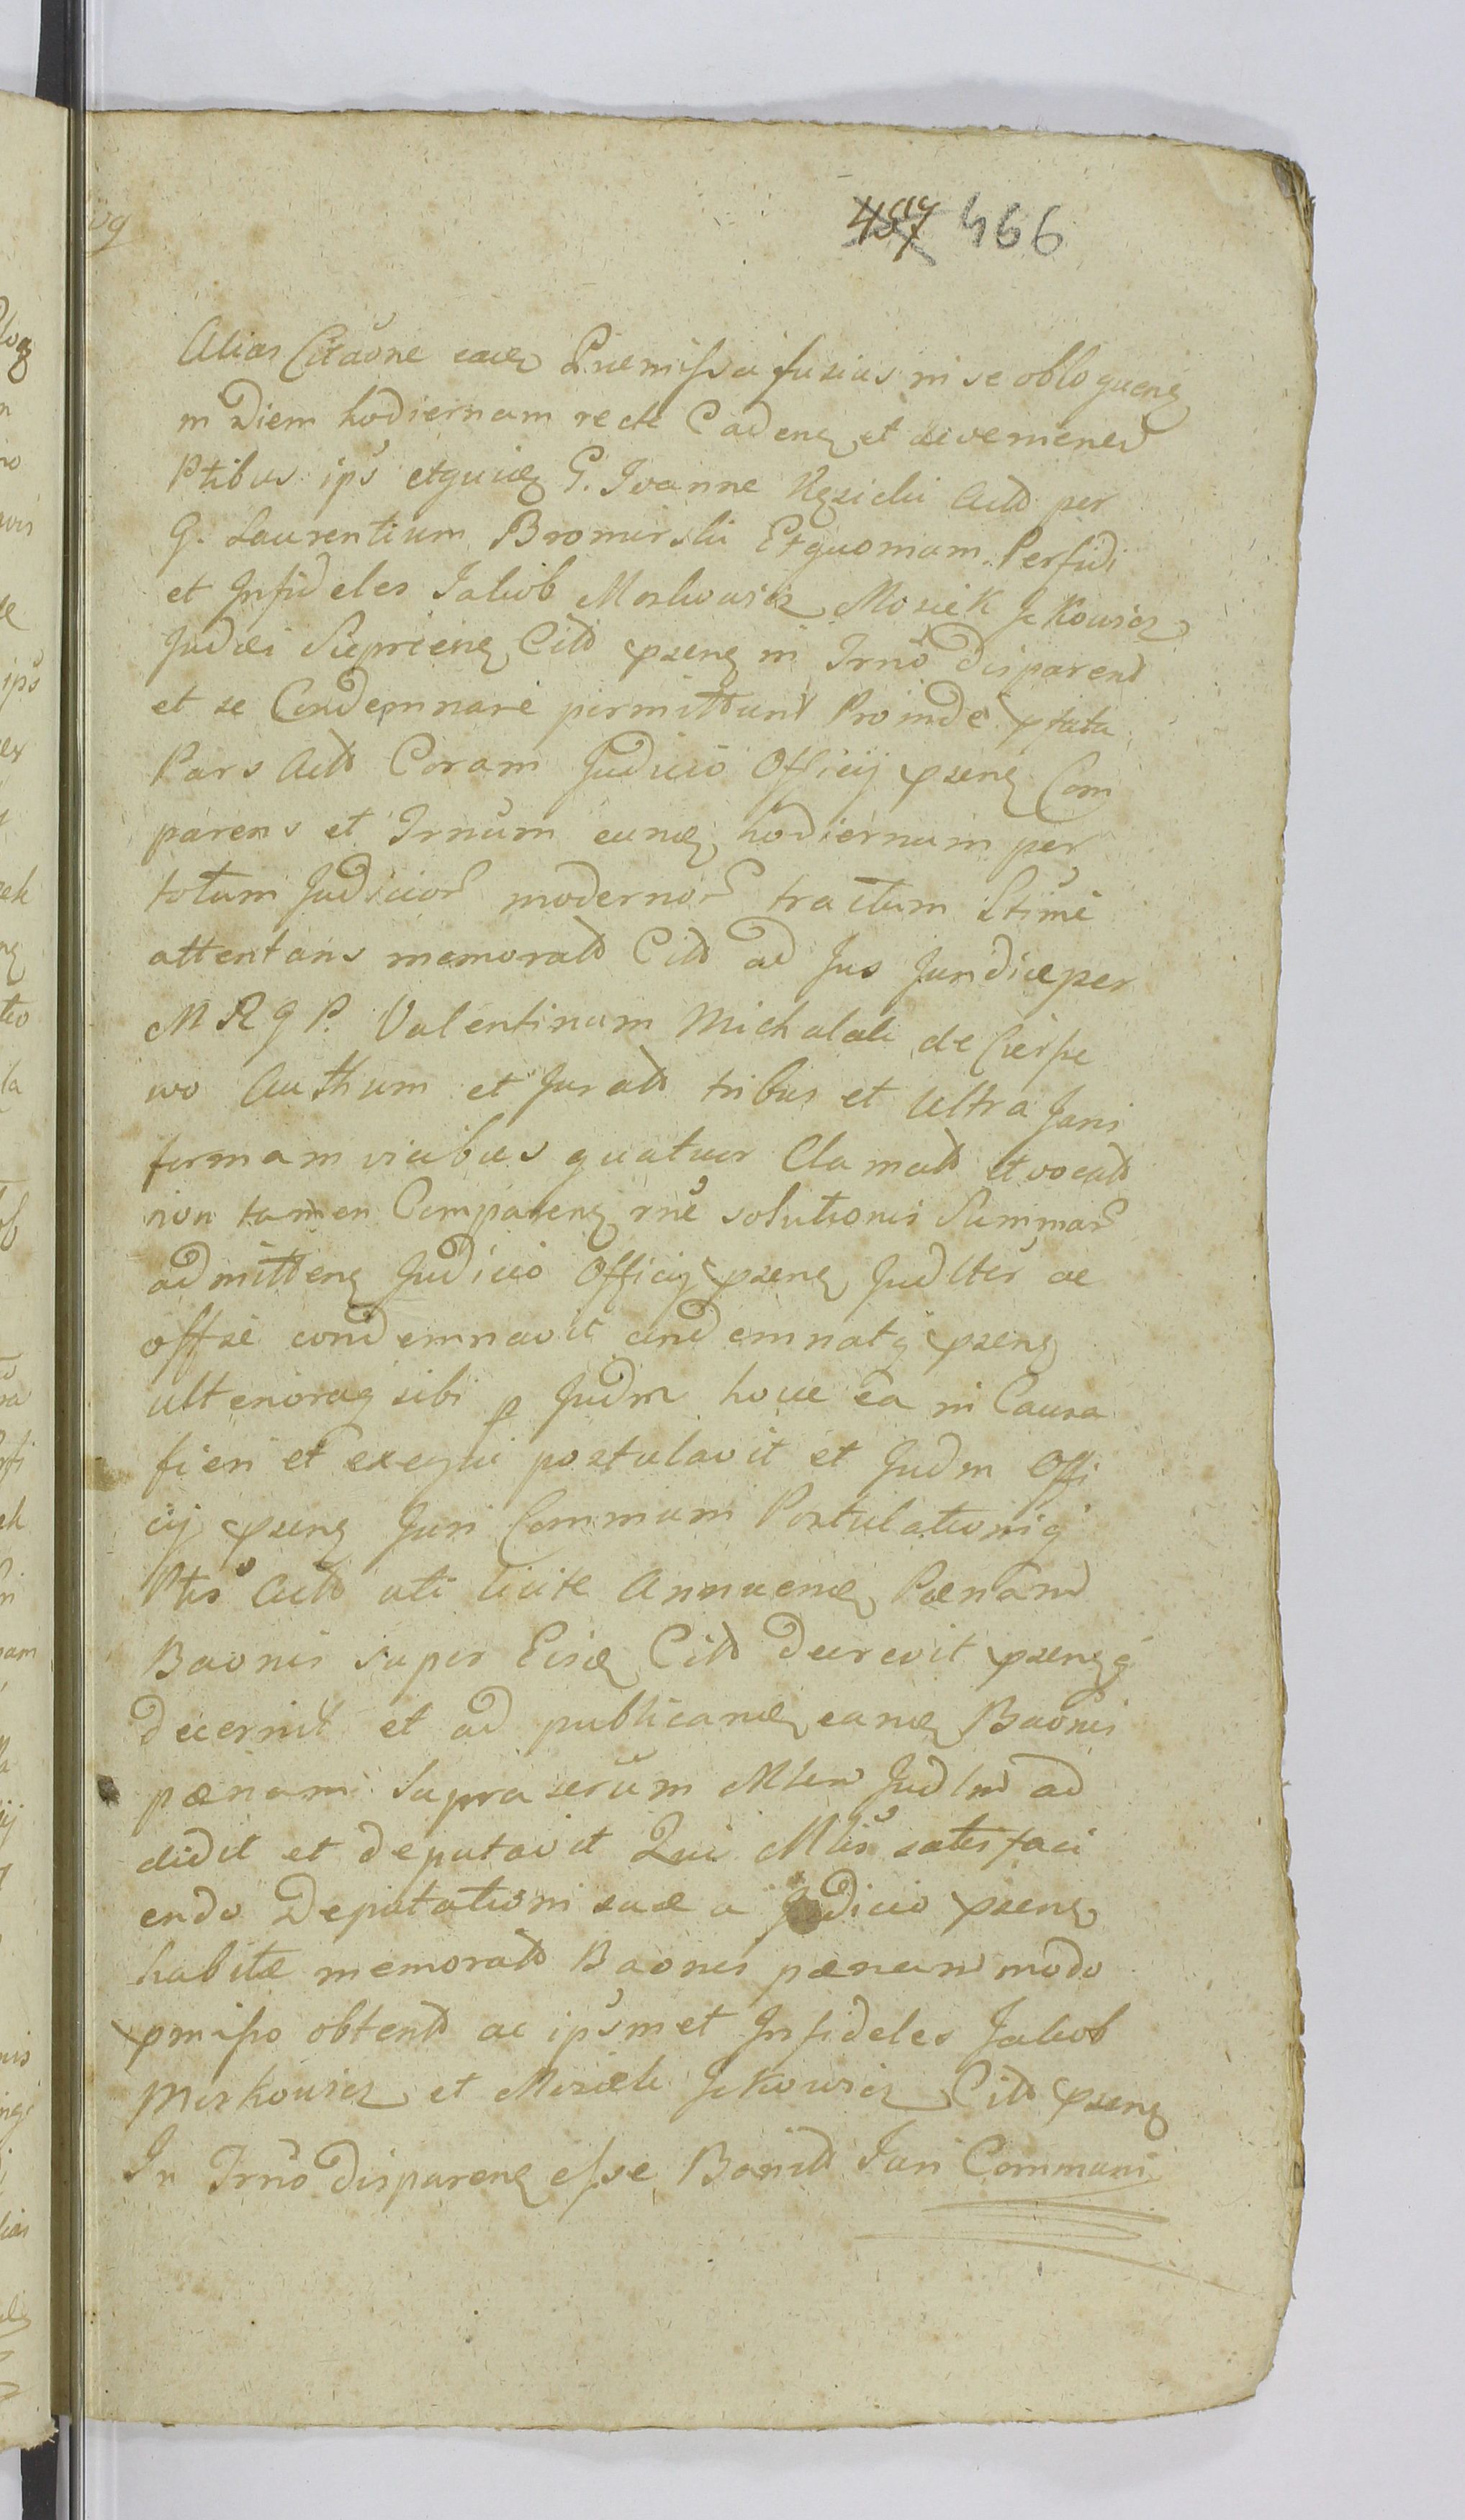 457 466
Alias Citaõne eaeq Praemissa fusius in se obloqueng
in Diem hodiernam recte Cadeng et adveniened
Ptibus ips̃ G. Joanne actt per
G. Laurentium Bromirski Et quoniam Perfidi
et Infideles Jakob Moskowicz Mosiek Jckowicz
Judaei Sieprceng Citt pseng in Trno disparent
et se Condemnare permittunt Proinde ptata
Pars Actt Coram Judicio Officij pseng Com
parens et Trnum eunq hodiernum per
totum Judicior modernor tractum Stime
attentans memoratt Citt ad Jus Juridice per
M R G P. Valentinum Michalak de Cierpe
wo Authum et Juratt tribus et ultra Jani
formam vicibus quatuor Clamatt et vocatt
non tamen Compareng rñe solutionis Summar
admitteng Judicio Officij pseng Judlter ac
offse condemnavit condemnatq pseng
ulterioraq sibi p Judm hocce ea in Causa
fieri et exequi postulavit et Judm Offi
cij pseng Juri Commum Postulationiq
Ptis Actt uti licite Annuenq Paenam
Baonis super Eisq Citt decrevit psengq
decernit et ad publicandq eanq Baonis
paenam suprascrum Mlem Judlem ad
didit et deputavit Qui Mlis satisfaci
endo Deputationi suae a Judicio pseng
habitae memoratt Baonis paenam modo
pmisso obtentt ac ipsmet Infideles Jakob
Moskowicz et Mosiek Jckowicz Citt pseng
In Trno dispareng esse Banitt Juri Communi